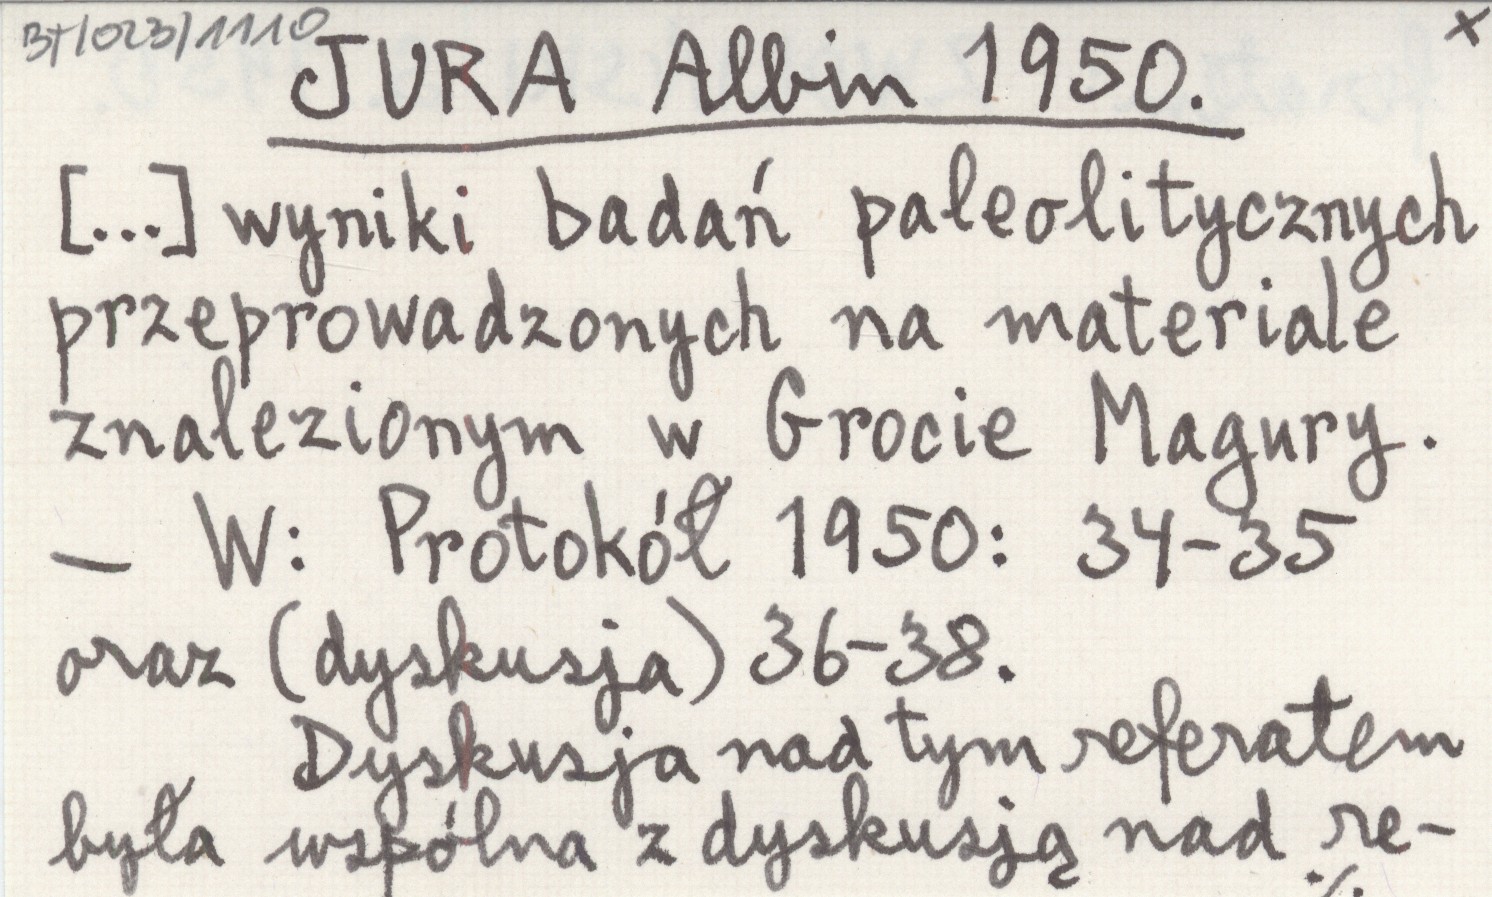 BT/023/1110
x
JURA Albin 1950.
[...] wyniki badań paleolitycznych
przeprowadzonych na materiale
znalezionym w Grocie Magury.
— W: Protokół 1950: 34-35
oraz (dyskusja) 36-38.
Dyskusja nad tym referatem
była wspólna z dyskusją nad re-
./.